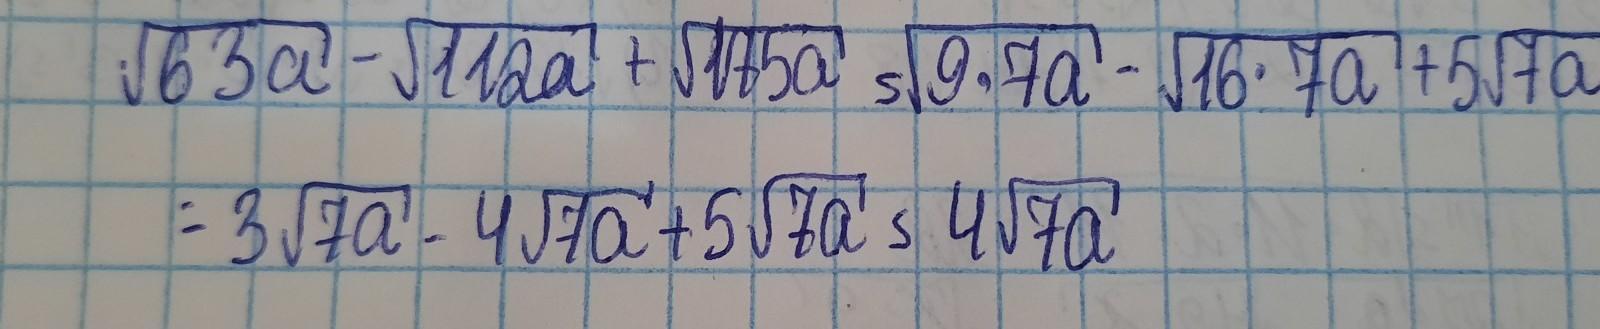 √63a - √112a + √175a = √9·7a - √16·7a + 5√7a
= 3√7a - 4√7a + 5√7a = 4√7a